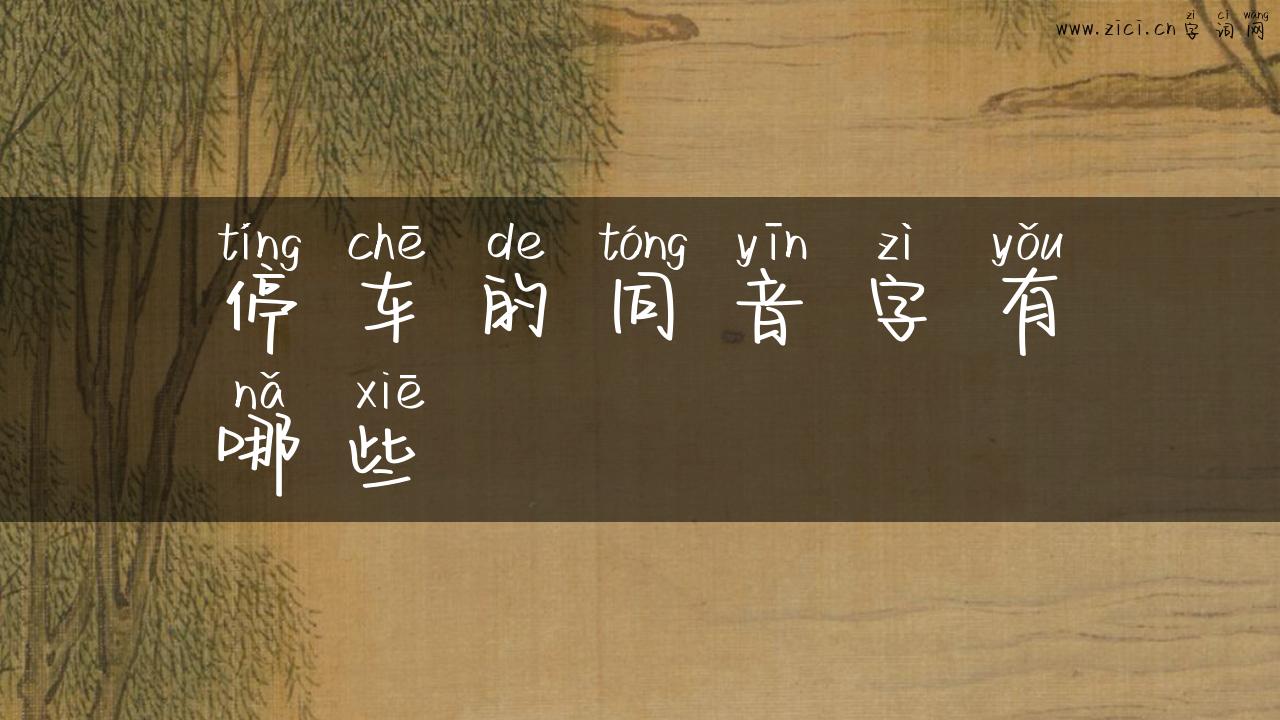 zì cí wǎng
www.zici.cn 字词网
tíng chē de tóng yīn zì yǒu
停车的同音字有
nǎ xiē
哪些